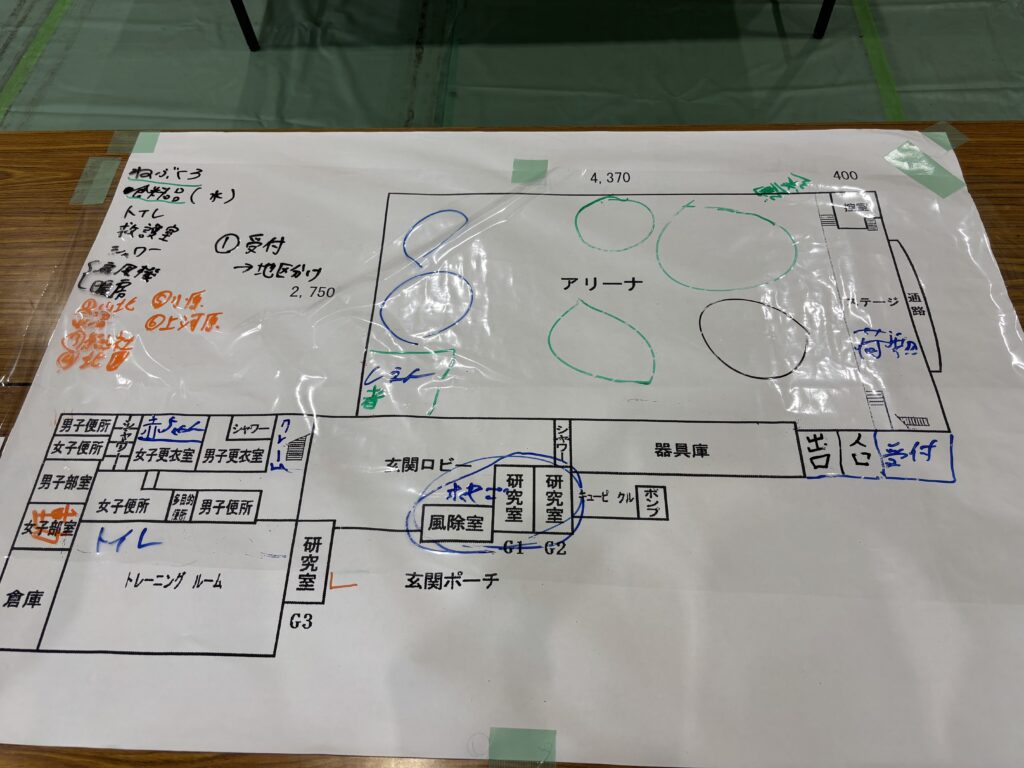 ねぶくろ
食料品(水)
トイレ
救護室
シャワー
扇風機
暖房
①受付
→地区分け
2,750
⑤川原
⑥上河原
4,370
400
アリーナ
ステージ
通路
荷物
男子便所
女子便所
男子部室
女子部室
倉庫
シャワー
赤ちゃん
女子更衣室
シャワー
男子更衣室
クレーム
女子便所
多目的便所
男子便所
トイレ
トレーニング ルーム
研究室
G3
玄関ロビー
風除室
研究室
G1
研究室
G2
玄関ポーチ
シャワー
器具庫
キュービクル
ポンプ
出口
入口
受付